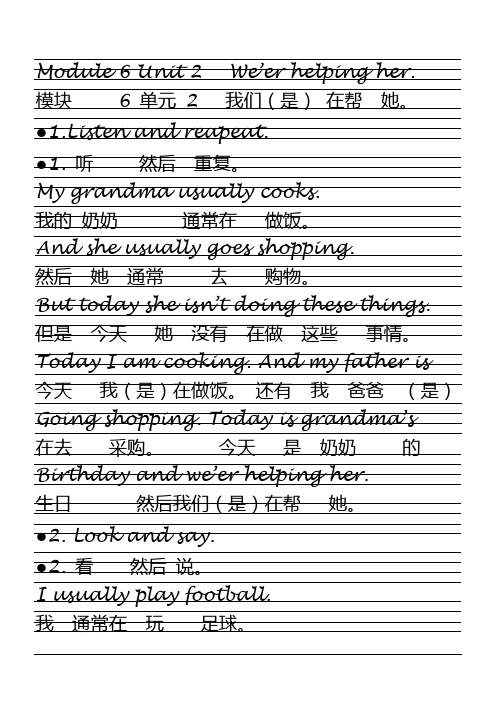 Module 6 Unit 2 We'er helping her.
模块 6 单元 2 我们（是） 在帮 她。
●1.Listen and reapeat.
●1. 听 然后 重复。
My grandma usually cooks.
我的 奶奶 通常在 做饭。
And she usually goes shopping.
然后 她 通常 去 购物。
But today she isn't doing these things.
但是 今天 她 没有 在做 这些 事情。
Today I am cooking. And my father is
今天 我（是）在做饭。 还有 我 爸爸 （是）
Going shopping. Today is grandma's
在去 采购。 今天 是 奶奶 的
Birthday and we'er helping her.
生日 然后我们（是）在帮 她。
●2. Look and say.
●2. 看 然后 说。
I usually play football.
我 通常在 玩 足球。